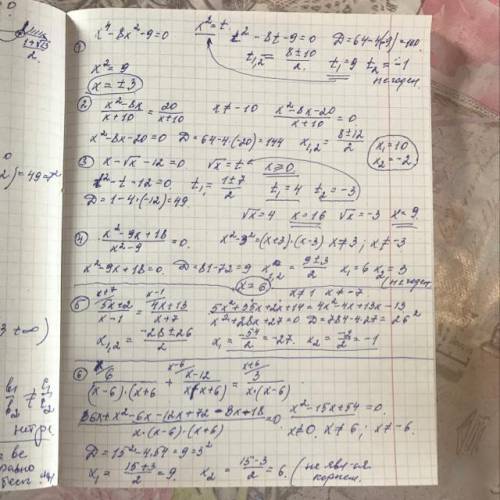 ① x⁴-8x²-9=0 x²=t t²-8t-9=0 D=64-4(-9)=100
t₁,₂ = (8±10)/2. t₁=9 t₂=-1
x²=9 не годен.
x=±3
② (x²-8x)/(x+10) = 20/(x+10) x≠-10 (x²-8x-20)/(x+10) = 0.
x²-8x-20=0 D=64-4·(-20)=144 x₁,₂ = (8±12)/2 x₁=10
x₂=-2.
③ x-√x-12=0 √x=t x≥0
t²-t-12=0. t₁ = (1±7)/2 t₁=4 t₂=-3
D=1-4·(-12)=49. √x=4 x=16 √x=-3 x=9.
④ (x²-9x+18)/(x²-9) = 0. x²-3²=(x+3)·(x-3) x≠3; x≠-3
x²-9x+18=0. D=81-72=9 x₁,₂ = (9±3)/2 x₁=6 x₂=3
x=6 (не годен
x≠1 x≠-7
⑤ x+7 x-1
(5x+2)/(x-1) = (4x+13)/(x+7) 5x²+35x+2x+14=4x²-4x+13x-13
x²+28x+27=0 D=784-4·27=26²
x₁,₂ = (-28±26)/2 x₁ = -54/2 = -27. x₂ = -2/2 = -1
⑥ x-6 x+6
6/((x-6)·(x+6) + (x-12)/(x(x+6) = 3/(x·(x-6)
(36x+x²-6x-12x+72-3x-18)/(x·(x-6)·(x+6) = 0 x²-15x+54=0.
x≠0. x≠6; x≠-6.
D=15²-4·54=9=3²
x₁ = (15+3)/2 = 9. x₂ = (15-3)/2 = 6. (не явл-ся
корнем.